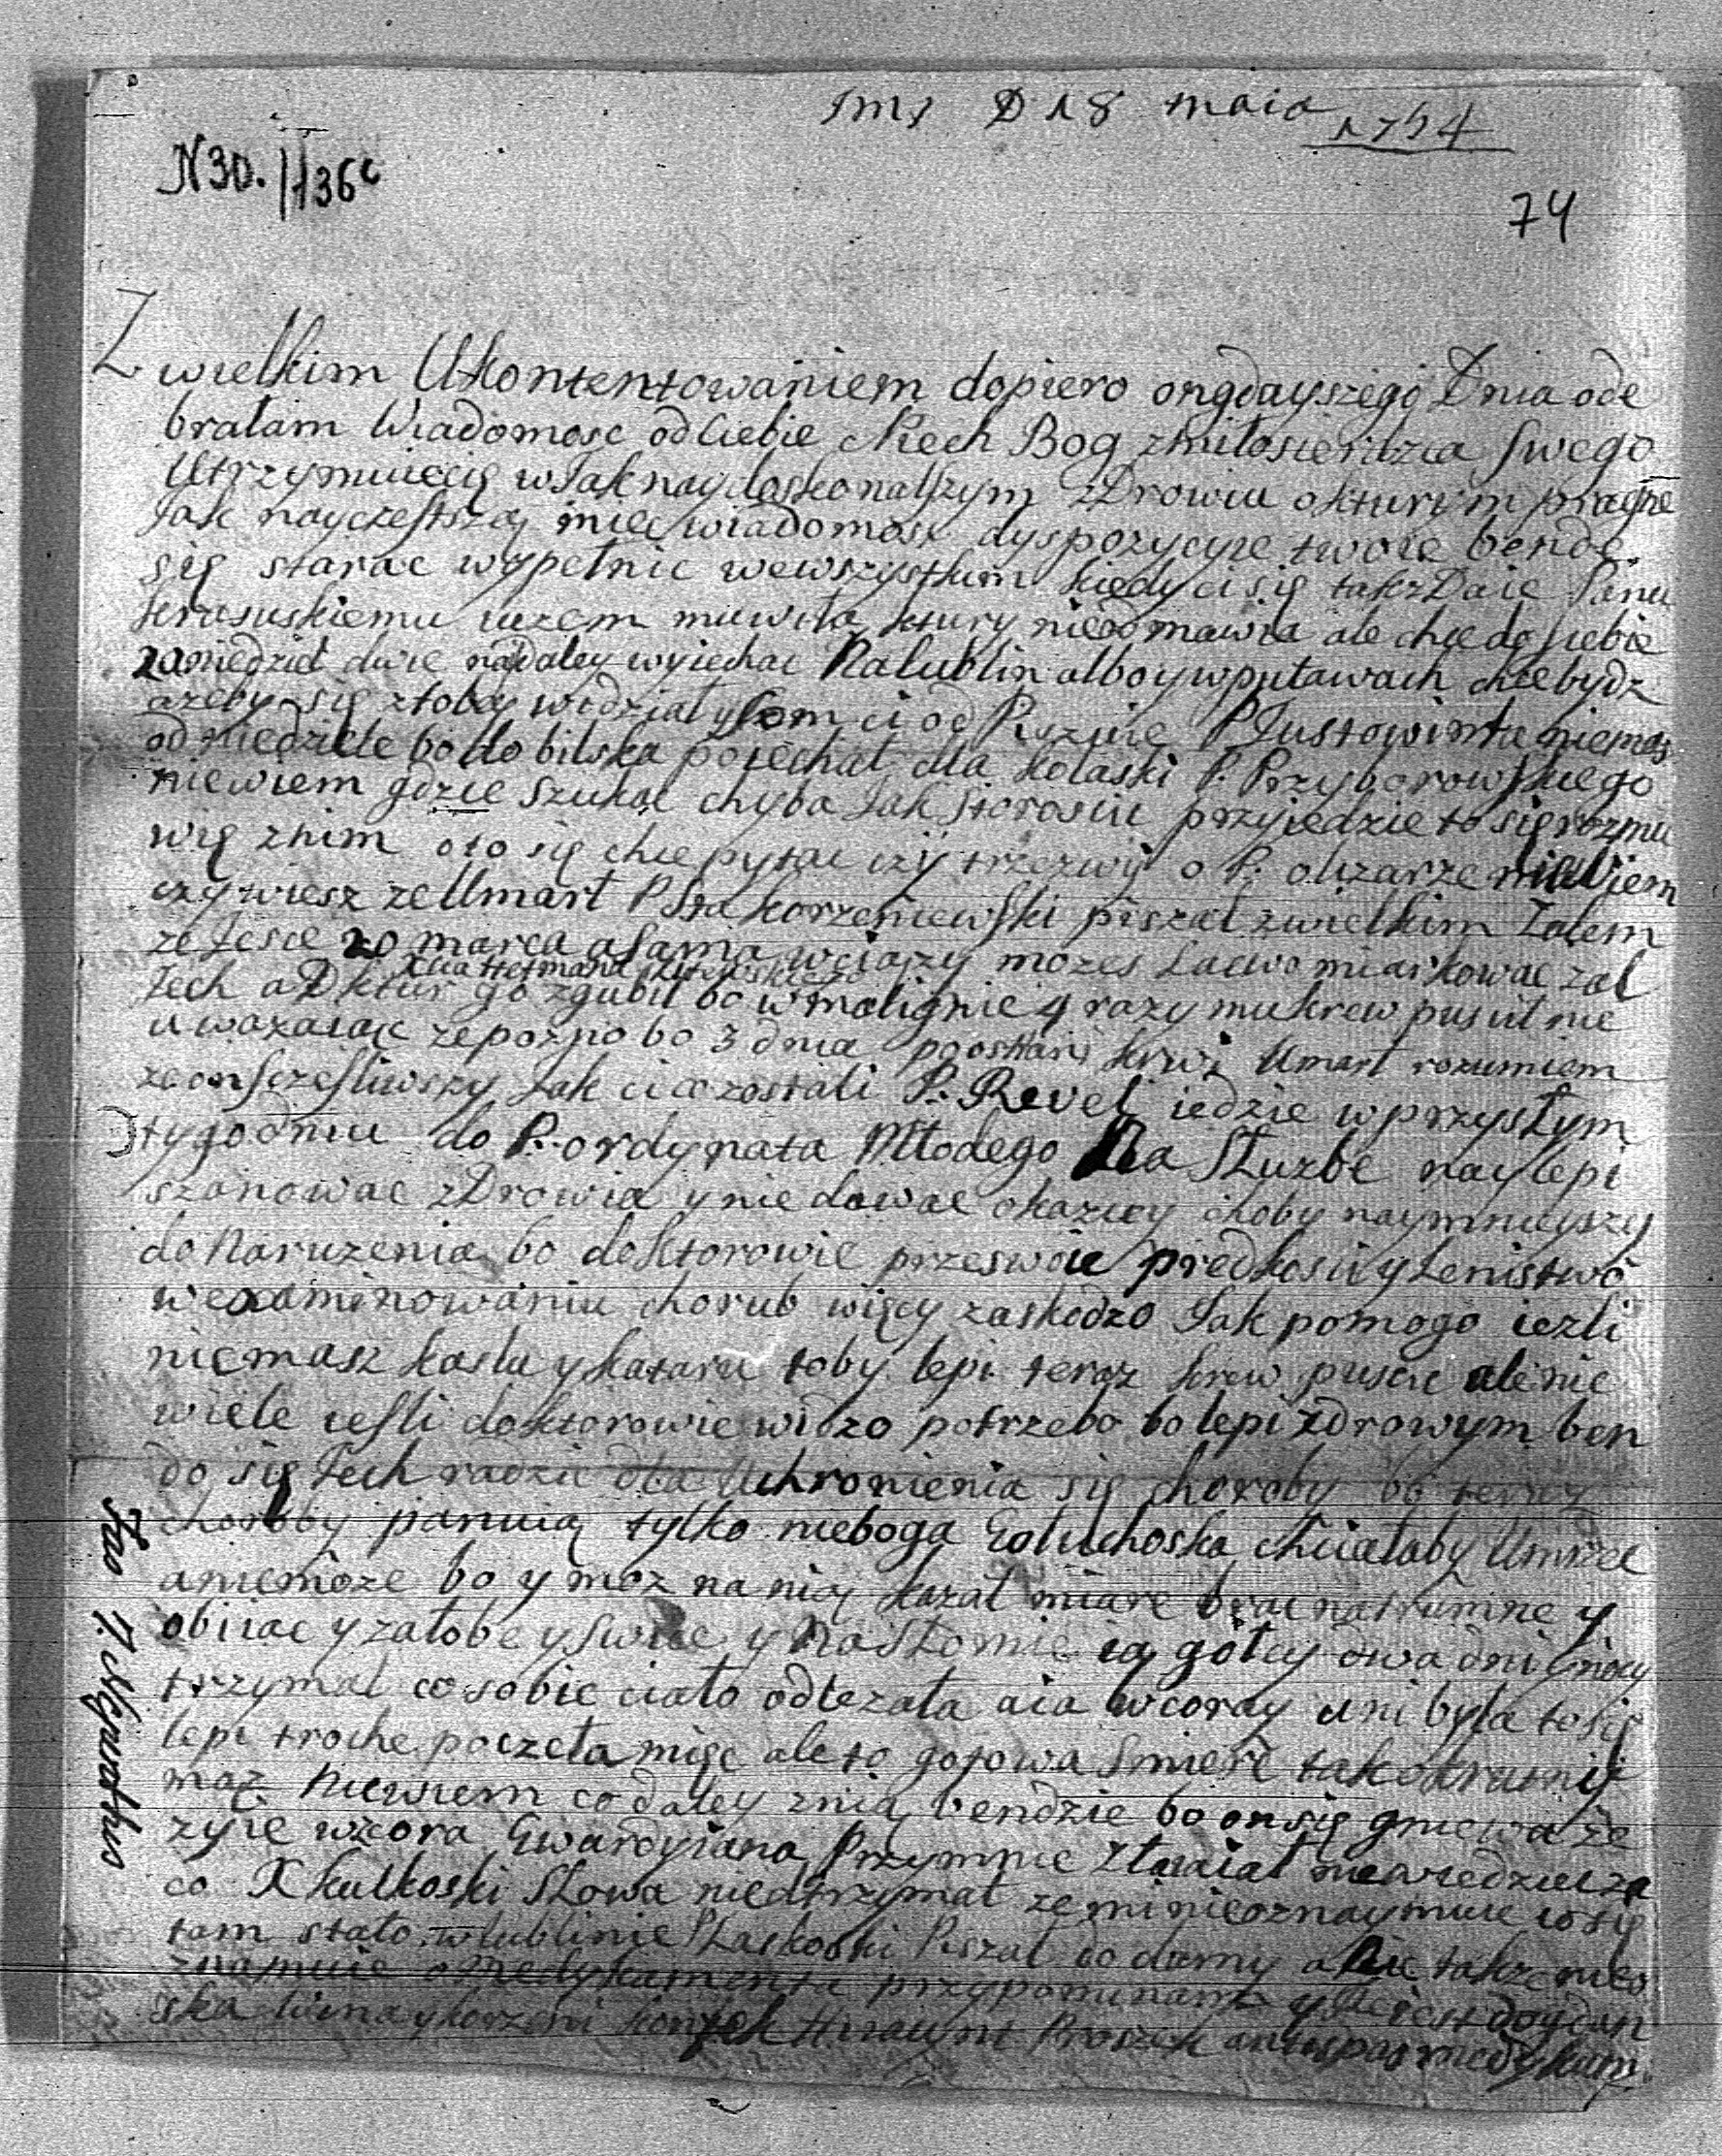 Jms D 18 maia 1754
N30. /136c
74
Z wielkim Ukontentowaniem dopiero ongdayszego Dnia ode
brałam Wiadomosc od Ciebie Niech Bog zmiłosierdzia swego
Utrzymuiecię w Jak naydoskonalszym zDrowiu o kturym pragne
Jak nayczęstszą miec wiadomosc dyspozycyie twoie bende
się starac wypełnic wewszystkim kiedy ci się tak zDaie Panu
krasuskiemu iużem muwiła ktury nieodmawia ale chce do siebie
zaniedziel dwie naydaley wyiechac Nalublin alboy wpuławach chce bydz
azeby się ztobą widział P Justowinta niemasz
od niedziele bo do bilska poiechał dla kolaski P. Przyborowskiego
niewiem gdzie szukac chyba Jak Staroscic przyiedzie to się rozmu
wię znim oto się chce pytac czy trzezwy o P. niewiem
czy wiesz ze Umarł P Sta korzeniewski piszał zwielkim Zalem
ze Jesce 20 marca a sama wciązy mozes Łacwo miarkowac zal
Jech a Doktur go zgubił bo w malignie 4 razy mu krew puscił nie
uwazaiąc ze pozno bo 3 dnia po ostatni krwi Umarł rozumiem
ze on sczesliwszy Jak ci co zostali P. Revel iedzie w przyszłym
tygodniu do P. ordynata Młodego Na Słuzbe naylepi
szanowac zDrowia y nie dawac okazyey choby naymnieyszy
do Naruzenia bo doktorowie przeswoie prędkosci y Lenistwo
w examinowaniu chorub więcy zaskodzo Jak pomogo iezli
niemasz kaslu y kataru toby lepi teraz krew puscic ale nie
wiele iesli doktorowie widzo potrzebo bo lepi zdrowym ben
do się Jech radzic dla Uchronienia się choroby bo teraz
choroby panuią tylko nieboga Gołuchoska chciałaby Umrzec
aniemoze bo y moz na nią kazał miare brac na trumne y
obiiac y załobe y swice y Na Słomie ią gołey dwa dni y nocy
trzymał co sobie ciało odlezała a ia wcoray u ni była to się
lepi troche poczeła miec ale to gotowa smierc tak okrutnik
mąz niewiem co daley znią bendzie bo on się gniewa ze
zyie wzcora Gwardyiana Przymnie Złaiał niewiedziec za
co X kulkoski Słowa niedtrzymał ze mi nieoznaymuie co się
tam stało w lublinie P Łaskoski Piszał do domy a Nic takze nieo
znamuie o Medykamenta przypominam